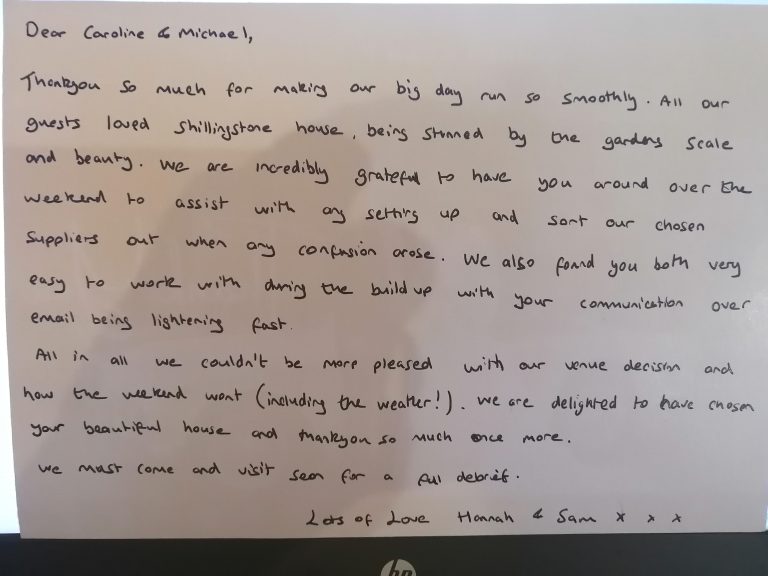 Dear Caroline & Michael,
Thankyou so much for making our big day run so smoothly. All our
guests loved Shillingstone house, being stunned by the gardens scale
and beauty. We are incredibly grateful to have you around over the
weekend to assist with any setting up and sort our chosen
suppliers out when any confusion arose. We also found you both very
easy to work with during the build up with your communication over
email being lightening fast.
All in all we couldn't be more pleased with our venue decision and
how the weekend went (including the weather!). We are delighted to have chosen
your beautiful house and thankyou so much once more.
We must come and visit soon for a full debrief.
Lots of Love Hannah & Sam x x x
hp